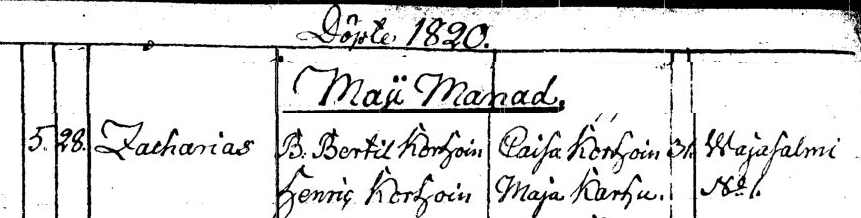 Döpte 1820.
Maji Manad.
5. 28. Zacharias B. Bertil Korhoin Caisa Korhoin 31. Wajasalmi
Henric Korhoin Maja Karhu. No 1.